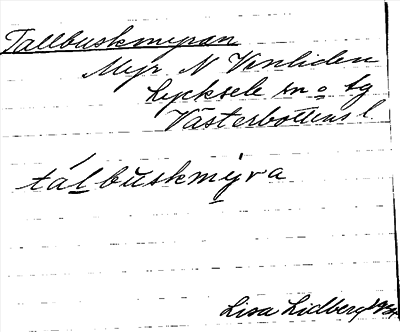 Tallbuskmyran
Myr N Venliden
Lycksele sn o tg
Västerbottens l.
tálbuskmyra
Lisa Lidberg